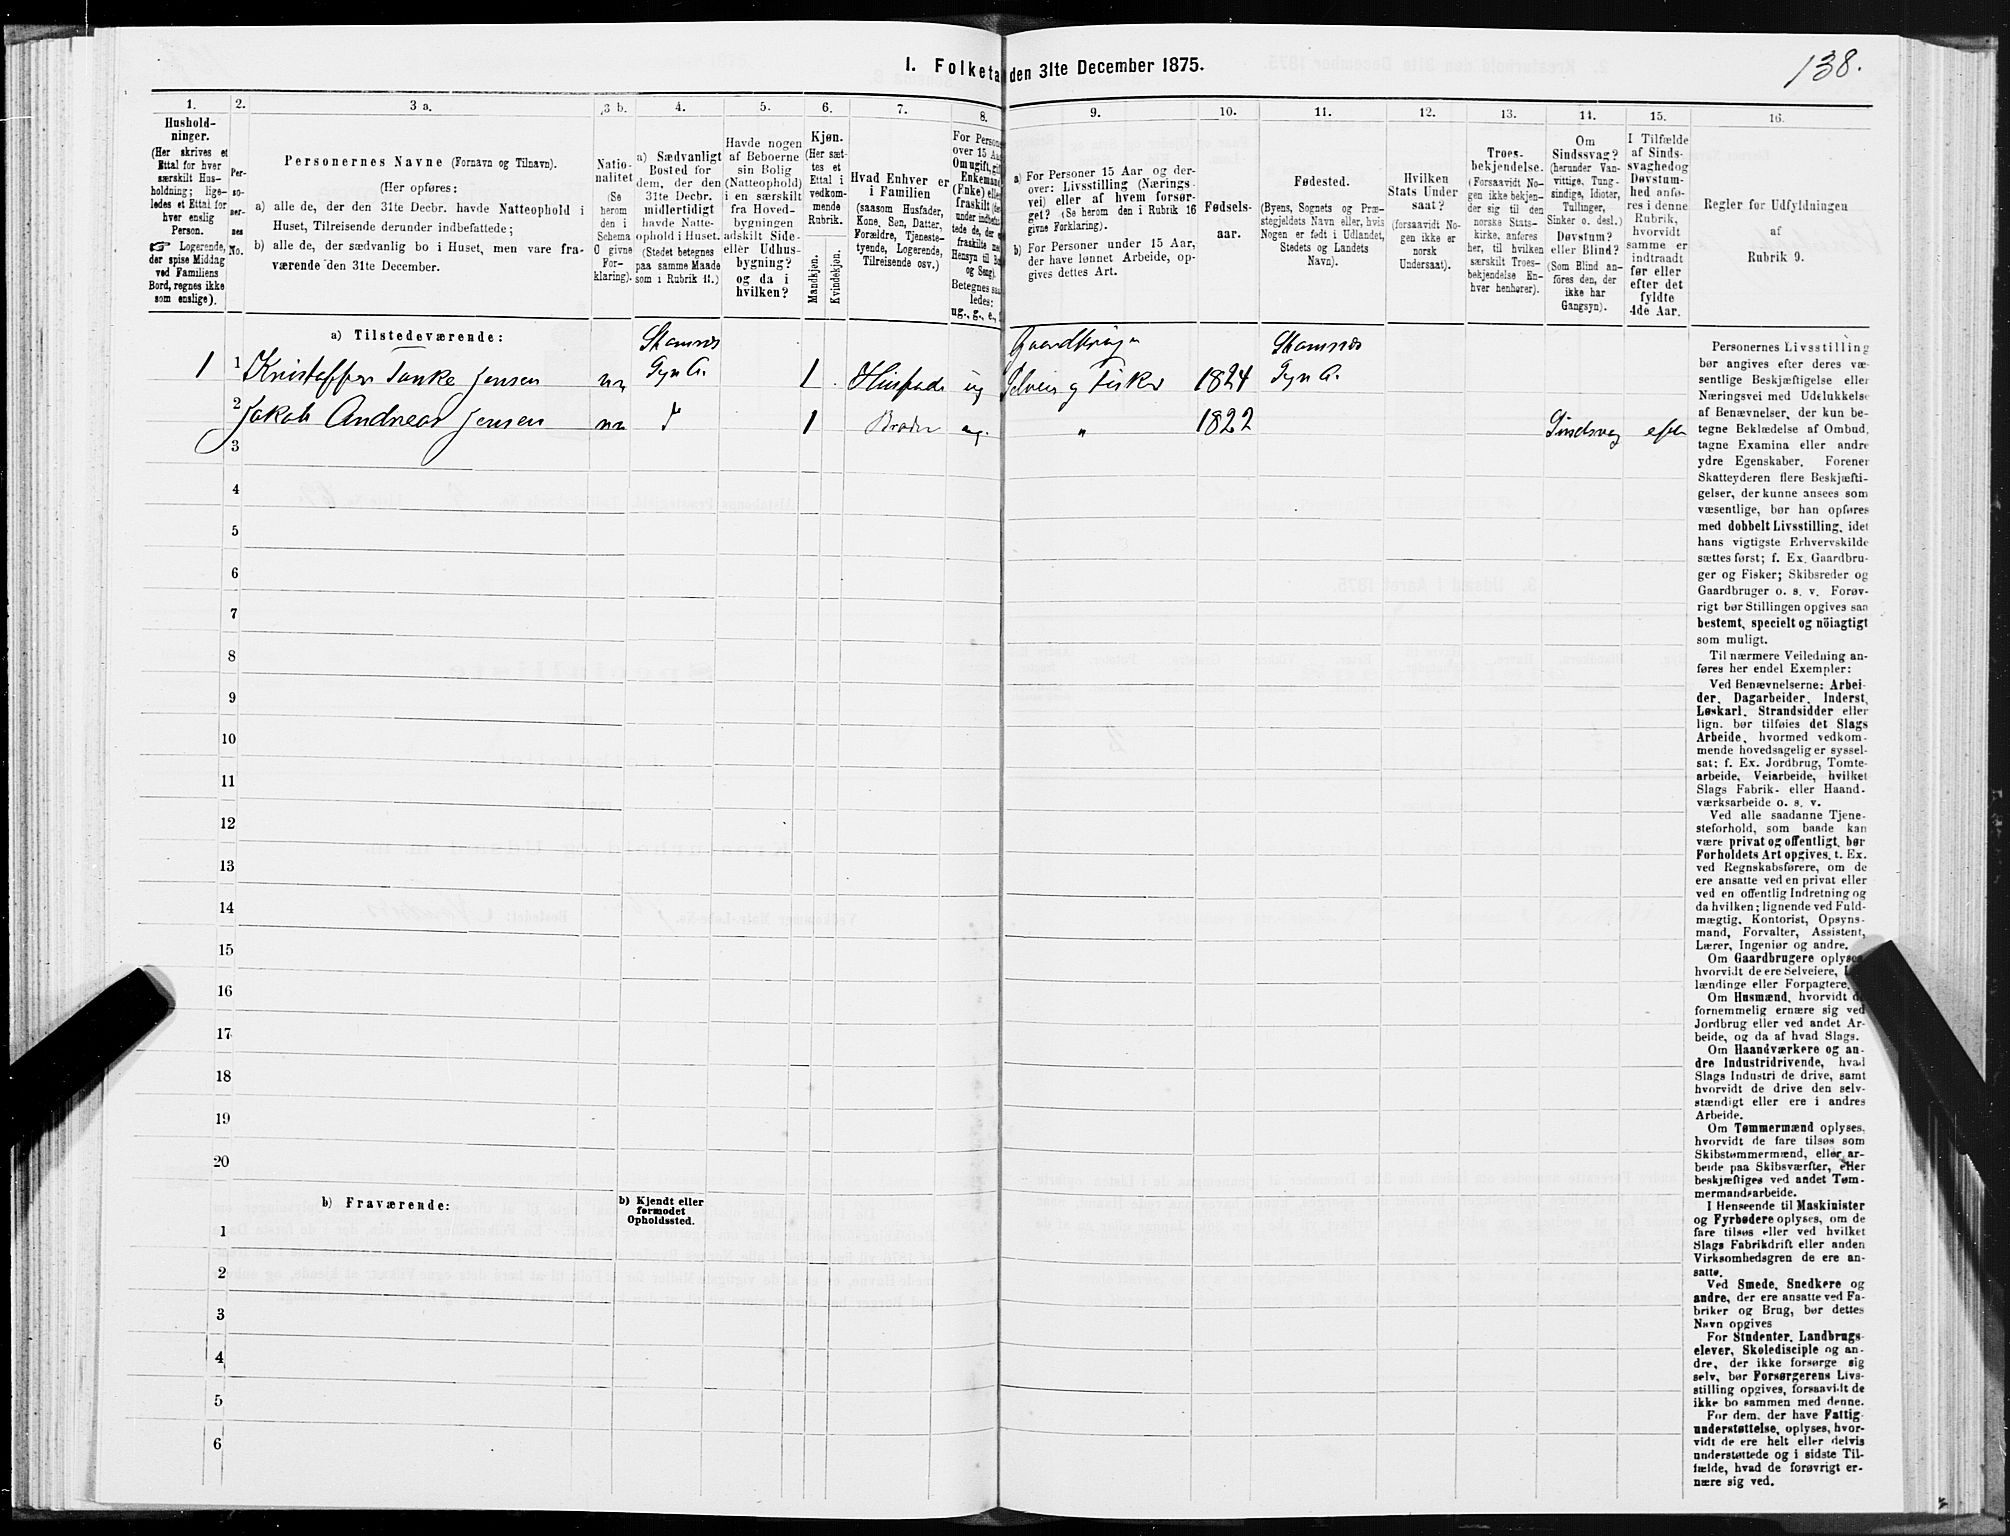 138.
I. Folketa den 31te December 1875.
1. 2. 3 a. 3 b. 4. 5. 6. 7. 8. 9. 10. 11. 12. 13. 14. 15. 16.
Hushold-
ninger.
(Her skrives et
Ettal for hver
særskilt Hus-
holdning; lige-
ledes et Ettal for
hver enslig
Person.
☞ Logerende,
der spise Middag
ved Familiens
Bord, regnes ikke
som enslige).
Per-
so-
ner-
nes
No.
Personernes Navne (Fornavn og Tilnavn).
(Her opføres:
a) alle de, der den 31te Decbr. havde Natteophold i
Huset, Tilreisende derunder indbefattede;
b) alle de, der sædvanlig bo i Huset, men vare fra-
værende den 31te December.
Natio-
nalitet
(Se
herom
den i
Schema
O givne
For-
klaring).
a) Sædvanligt
Bosted for
dem, der den
31te Decbr.
midlertidigt
havde Natte-
ophold i Huset.
(Stedet betegnes
paa samme Maade
som i Rubrik 11.)
Havde nogen
af Beboerne
sin Bolig
(Natteophold)
i en særskilt
fra Hoved-
bygningen
adskilt Side-
eller Udhus-
bygning?
og da i
hvilken?
Kjøn.
(Her sæt-
tes et
Ettal i
vedkom-
mende
Rubrik.
Mandkjøn.
Kvindekjøn.
Hvad Enhver er
i Familien
(saasom Husfader,
Kone, Søn, Datter,
Forældre, Tjeneste-
tyende, Logerende,
Tilreisende osv.)
For Persone
over 15 Aa
Om ugift, gif
Enkemand
(Enke) elle
fraskilt (de
under indbefat-
tede de, der e
fraskilte me
Hensyn til Bo
og Seng).
Betegnes saa
ledes:
ug., g., e., f
a) For Personer 15 Aar og der-
over: Livsstilling (Nærings-
vei) eller af hvem forsør-
get? (Se herom den i Rubrik 16
givne Forklaring).
b) For Personer under 15 Aar,
der have lønnet Arbeide, op-
gives dettes Art.
Fødsels-
aar.
Fødested.
(Byens, Sognets og Præ-
stegjeldets Navn eller, hvis
Nogen er født i Udlandet,
Stedets og Landets
Navn).
Hvilken
Stats Under
saat?
(forsaavidt No-
gen ikke er
norsk
Undersaat).
Troes-
bekjendelse.
(Forsaavidt No-
gen ikke bekjen-
der sig til den
norske Stats-
kirke, anføres
her, til hvilken
særskilt Troes-
bekjendelse En-
hver henhører).
Om
Sindssvag?
(herunder Van-
vittige, Tung-
sindige, Idioter,
Tullinger,
Sinker o. desl.)
Døvstum?
eller Blind?
(Som Blind an-
føres den, der
ikke har
Gangsyn).
I Tilfælde
af Sinds-
svaghed og
Døvstum-
hed anfø-
res i denne
Rubrik,
hvorvidt
samme er
indtraadt
før eller
efter det
fyldte
4de Aar.
Regler for Udfyldningen
af
Rubrik 9.
a) Tilstedeværende:
Stamnes Gaardbruger Stamnes
1 1 Kristoffer Tanke Jensen nn 1 Husfade ug Selveier og Fisker 1824
2 Jakob Andreas Jensen nn 1 Broder ug. " 1822 Sindsvag efter
3
4
5
6
7
8
9
10
11
12
13
14
15
16
17
18
19
20
b) Fraværende:
b) Kjendt eller
formodet
Opholdssted.
1
2
3
4
5
6
Personernes Livsstilling
bør angives efter deres væ-
sentlige Beskjæftigelse eller
Næringsvei med Udelukkelse
af Benævnelser, der kun be-
tegne Beklædelse af Ombud,
tagne Examina eller andre
ydre Egenskaber. Forener
Skatteyderen flere Beskjæfti-
gelser, der kunne ansees som
væsentlige, bør han opføres
med dobbelt Livsstilling, idet
hans vigtigste Erhvervskilde
sættes først; f. Ex. Gaardbru-
ger og Fisker; Skibsreder og
Gaardbruger o. s. v. Forøv-
rigt bør Stillingen opgives saa
bestemt, specielt og nöiagtigt
som muligt.
Til nærmere Veiledning an-
føres her endel Exempler:
Ved Benævnelserne: Arbei-
der, Dagarbeider, Inderst,
Løskarl, Strandsidder eller
lign. bør tilføies det Slags
Arbeide, hvormed vedkom-
mende hovedsagelig er syssel-
sat; f. Ex. Jordbrug, Tomte-
arbeide, Veiarbeide, hvilket
Slags Fabrik- eller Haand-
værksarbeide o. s. v.
Ved alle saadanne Tjene-
steforhold, som baade kan
være privat og offentligt, bør
Forholdets Art opgives, t. Ex.
ved Regnskabsførere, om de
ere ansatte ved en privat eller
ved en offentlig Indretning og
da hvilken; lignende ved Fuld-
mægtig, Kontorist, Opsyns-
mand, Forvalter, Assistent,
Lærer, Ingeniør og andre.
Om Gaardbrugere oplyses,
hvorvidt de ere Selveiere, L
lændinge eller Forpagtere.
Om Husmænd, hvorvidt d
fornemmelig ernære sig ved
Jordbrug eller ved andet Ar-
beide, og da af hvad Slags.
Om Haandværkere og an-
dre Industridrivende, hvad
Slags Industri de drive, samt
hvorvidt de drive den selv-
stændigt eller ere i andres
Arbeide.
Om Tømmermænd oplyses,
hvorvidt de fare tilsøs som
Skibstømmermænd, eller ar-
beide paa Skibsværfter, eller
beskjæftiges ved andet Tøm-
mermandsarbeide.
I Henseende til Maskinister
og Fyrbødere oplyses, om de
fare tilsøs eller ved hvilket
Slags Fabrikdrift eller anden
Virksomhedsgren de ere an-
satte.
Ved Smede, Snedkere og
andre, der ere ansatte ved Fa-
briker og Brug, bør dettes
Navn opgives
For Studenter, Landbrugs-
elever, Skoledisciple og an-
dre, der ikke forsørge sig
selv, bør Forsørgerens Livs-
stilling opgives, forsaavidt de
ikke bo sammen med denne.
For dem, der have Fattig-
understøttelse, oplyses, hvor-
vidt de ere helt eller delvis
understøttede og i sidste Til-
fælde, hvad de forøvrigt er-
nære sig ved.